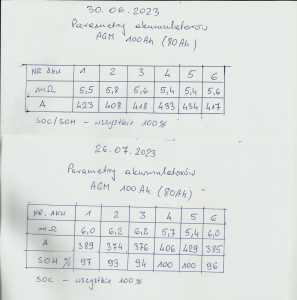 30.06.2023
Parametry akumulatorów
AGM 100Ah (80Ah)
NR AKU 1 2 3 4 5 6
mΩ 5,5 5,8 5,6 5,4 5,4 5,6
A 423 408 418 433 434 417
SOC/SOH - wszystkie 100%
26.07.2023
Parametry akumulatorów
AGM 100Ah (80Ah)
NR. AKU 1 2 3 4 5 6
mΩ 6,0 6,2 6,2 5,7 5,4 6,0
A 389 374 376 406 429 385
SOH % 97 93 94 100 100 96
SOC - wszystkie 100%